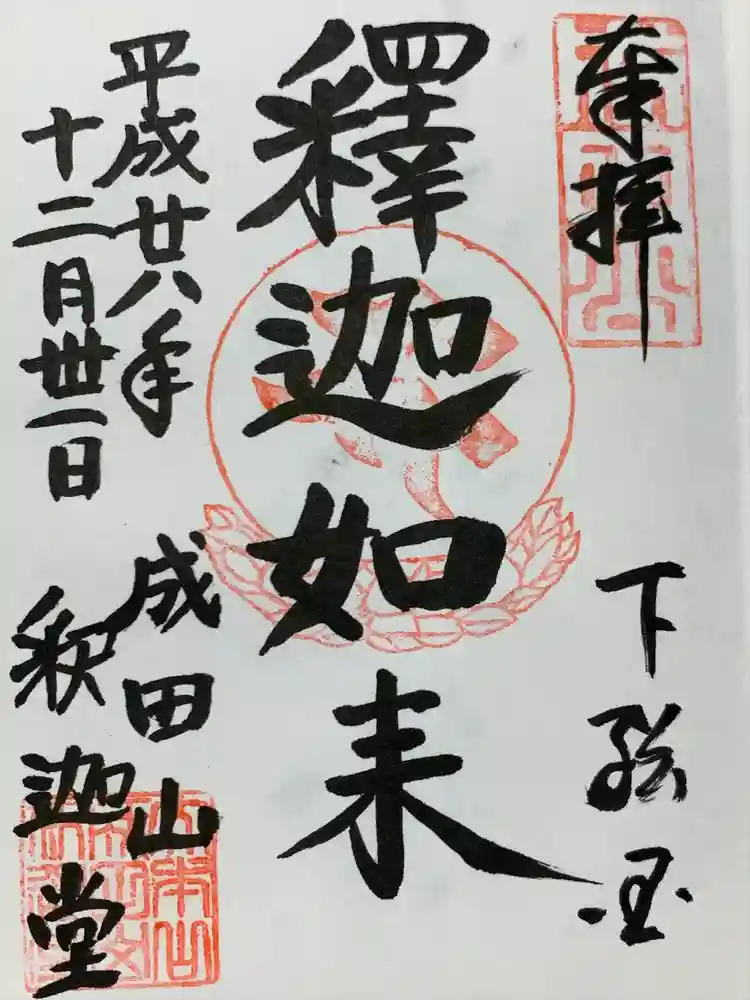 奉拝
下総国
釋迦如来
平成廿八年
十二月卅一日
成田山
釈迦堂